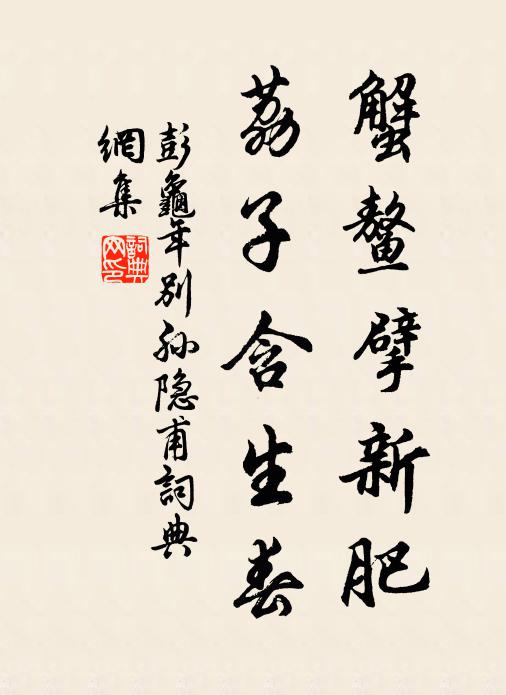 蟹螯擘新肥
荔子含生春
彭龜年別孫隐甫詞典
網集
詞典网印